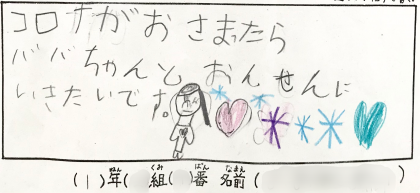 コロナがおさまったら
ババちゃんとおんせんに
いきたいです。
(1)年(　組(　)番 名前(　　　)